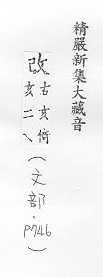 精嚴新集大藏音
改
古亥倚
亥二乀
(文部.P746)